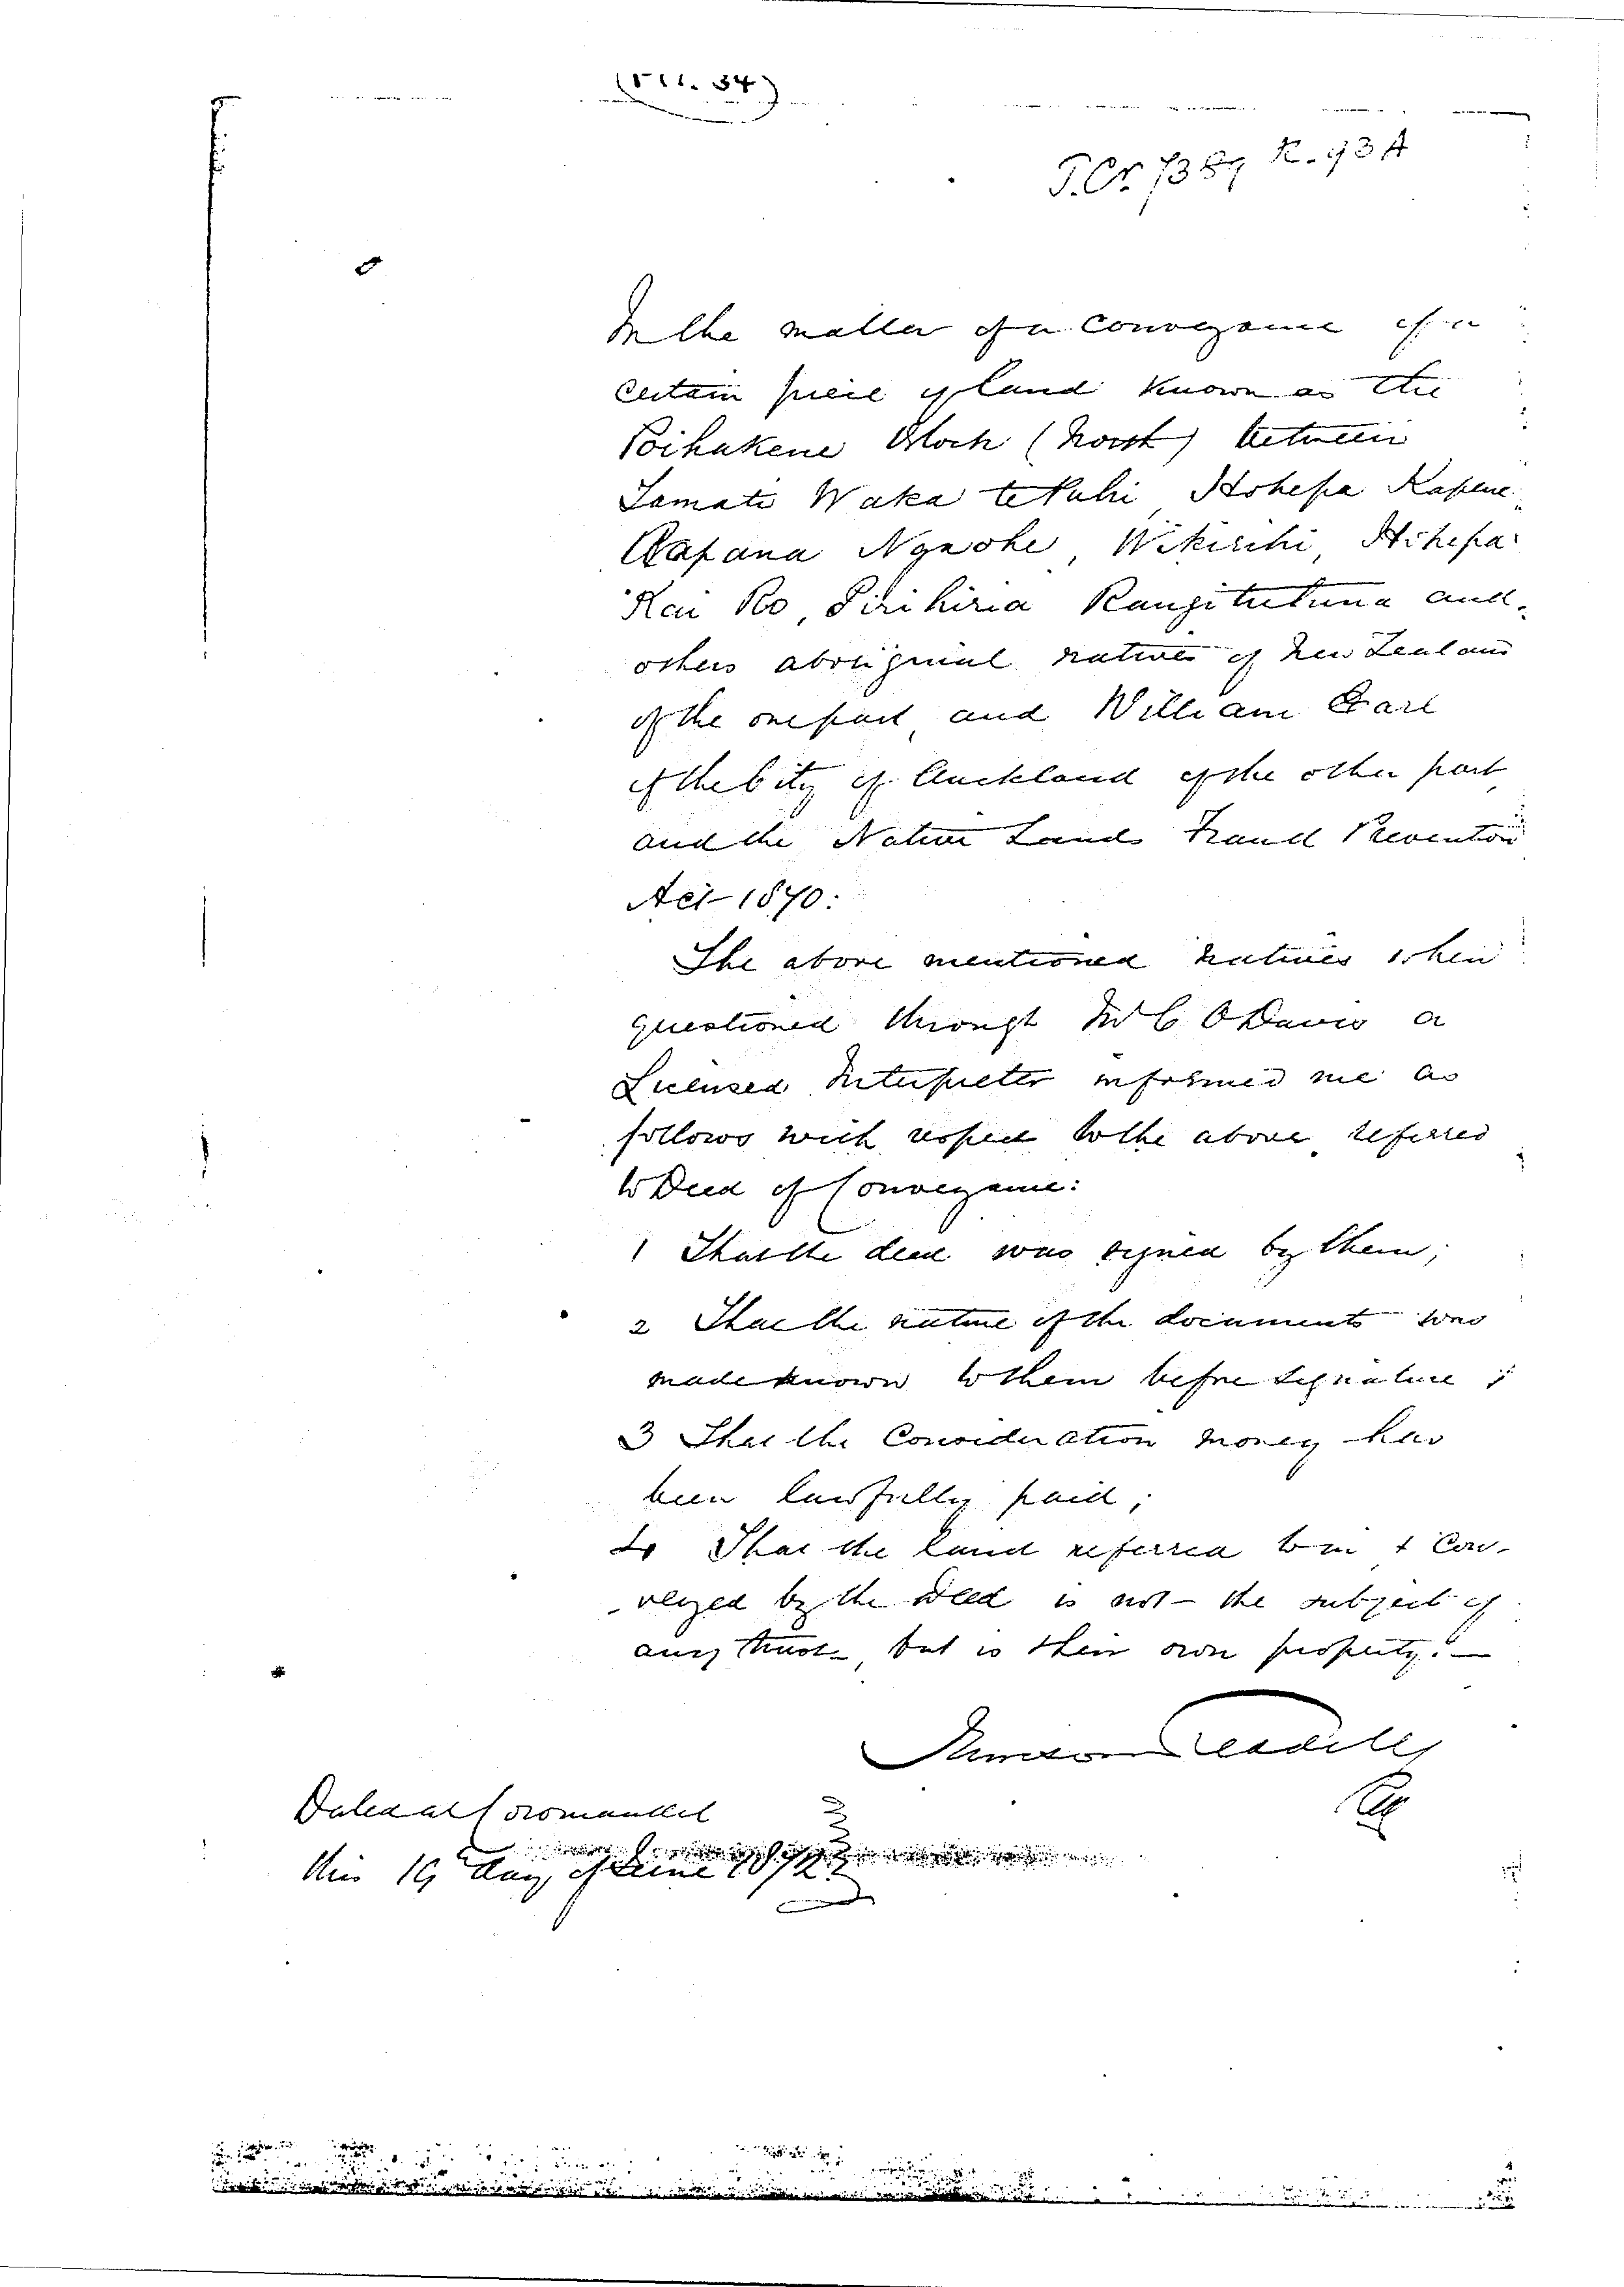 In the matter of a Conveyance of a
certain piece of land known as the
Poihakene Block (North) between
Tamati Waka te Puhi, Hohepa Kapene,
Rapana Ngaohe, Wikiriki, Hohepa
Kai Ro, Pirihira Rangitutuna and
others aboriginal natives of New Zealand
of the one part, and William Earl
of the City of Auckland of the other part
and the Native Lands Fraud Prevention
Act 1870:
The above mentioned natives when
questioned through Mr C O Davis a
Licensed Interpreter informed me as
follows with respect to the above referred
to Deed of Conveyance:
1 That the deed was signed by them;
2 That the nature of the documents was
made known to them before signature;
3 That the Consideration Money has
been lawfully paid;
4 That the land referred to in & Con-
veyed by the Deed is not the subject of
any trust, but is their own property.
Dated at Coromandel
this 19 day of June 1872